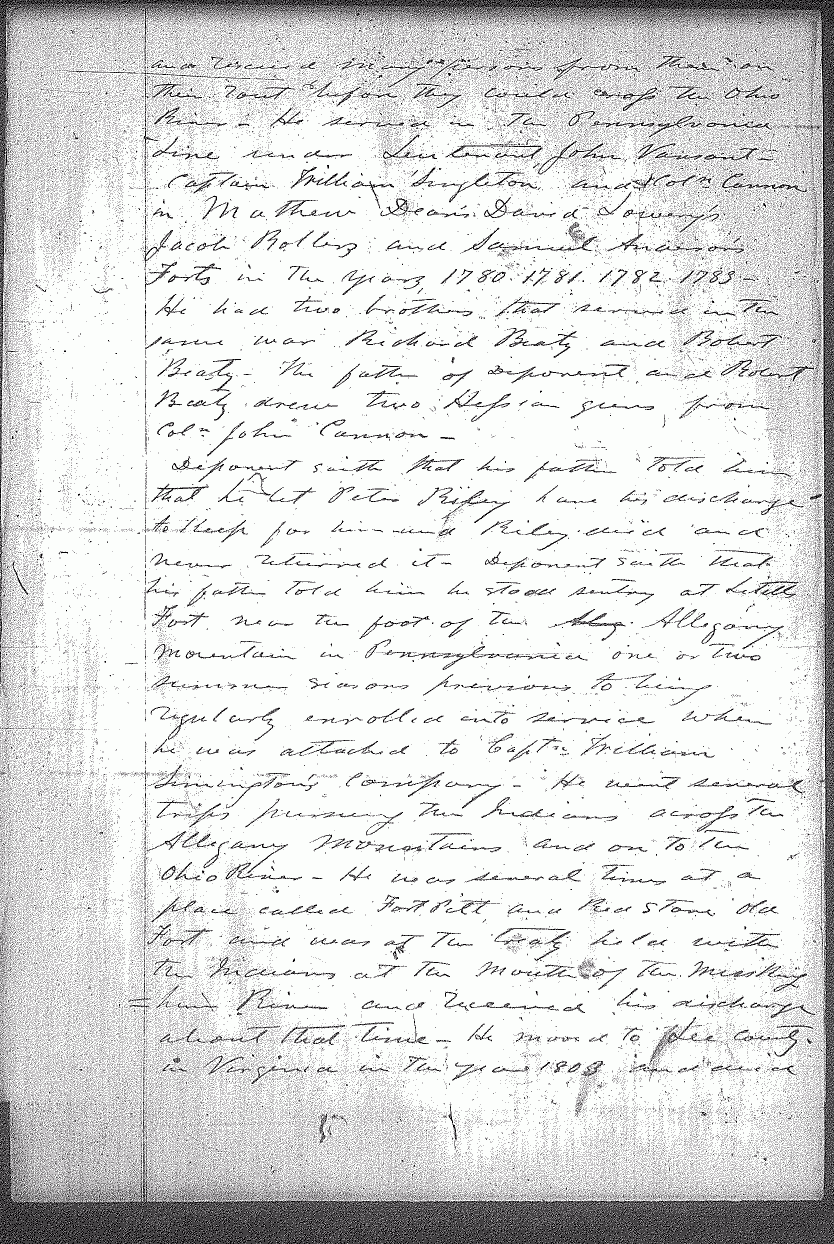 and rescued many persons from them on
their rout before they could cross the Ohio
River - He served in the Pennsylvania
Line under Leutenant John Vansant -
Captain William Singleton and Coln Cannon
in Mathew Dean's David Lowery's
Jacob Rollerz and Samuel Anderson's
Forts in the years 1780. 1781. 1782. 1783 -
He had two brothers that served in the
same war Richard Beaty and Robert
Beaty - The father of Deponent and Robert
Beaty drew two Hessian guns from
Coln John Cannon -
Deponent saith that his father told him
that he let Peter Riley have his discharge
to keep for him and Riley died and
never returned it - Deponent saith that
his father told him he stood sentry at
Fort near the foot of the Allegany
Mountain in Pennsylvania one or two
summer seasons previous to being
regularly enrolled into service when
he was attached to Captn William
Simington's Company - He went several
trips pursuing the Indians across the
Allegany Mountains and on to the
Ohio River - He was several times at a
place called Fort Pitt and Red Stone old
Fort and was at the treaty held with
the Indians at the Mouth of the Musking
=hum River and received his discharge
about that time - He moved to Lee County
in Virginia in the year 1803 and died